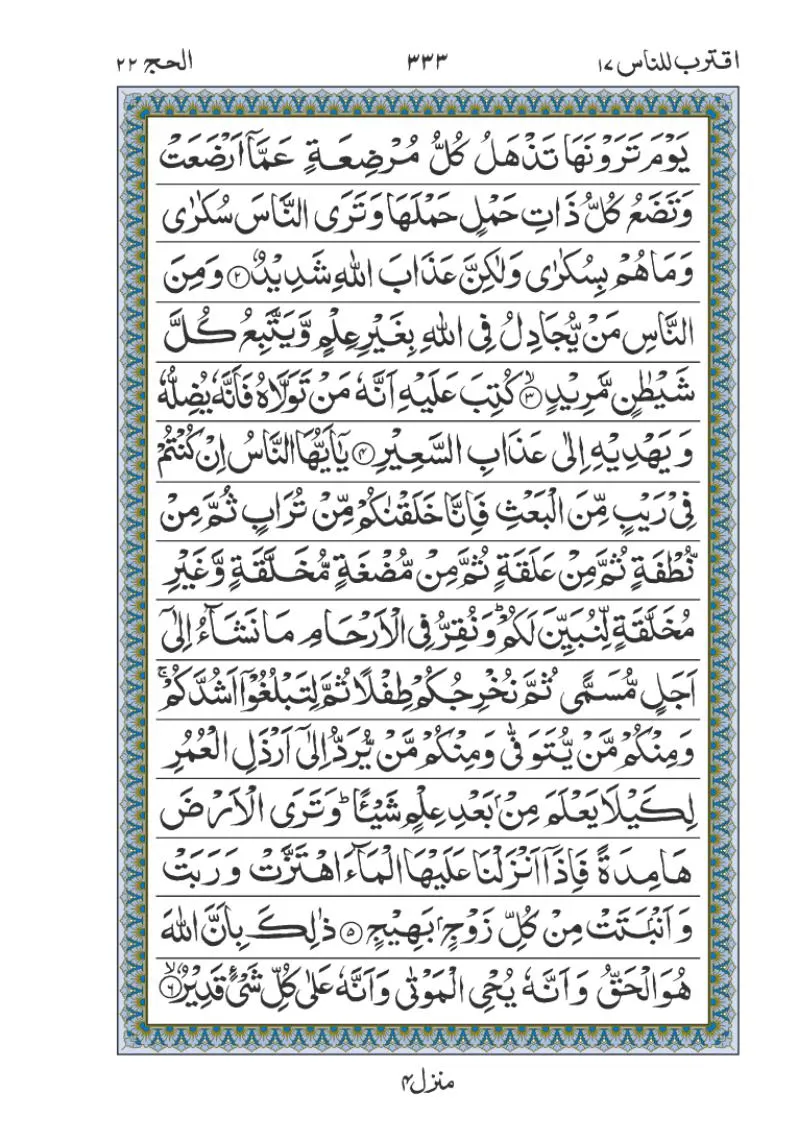 اقترب للناس ١٧
٣٣٣
الحج ٢٢
يَوْمَ تَرَوْنَهَا تَذْهَلُ كُلُّ مُرْضِعَةٍ عَمَّاۤ اَرْضَعَتْ
وَتَضَعُ كُلُّ ذَاتِ حَمْلٍ حَمْلَهَا وَتَرَى النَّاسَ سُكٰرٰى
وَمَا هُمْ بِسُكٰرٰى وَلٰكِنَّ عَذَابَ اللّٰهِ شَدِيْدٌ ۝۲ وَمِنَ
النَّاسِ مَنْ يُّجَادِلُ فِى اللّٰهِ بِغَيْرِ عِلْمٍ وَّيَتَّبِعُ كُلَّ
شَيْطٰنٍ مَّرِيْدٍ ۙ۝۳ كُتِبَ عَلَيْهِ اَنَّهٗ مَنْ تَوَلَّاهُ فَاَنَّهٗ يُضِلُّهٗ
وَيَهْدِيْهِ اِلٰى عَذَابِ السَّعِيْرِ ۝۴ يٰۤاَيُّهَا النَّاسُ اِنْ كُنْتُمْ
فِىْ رَيْبٍ مِّنَ الْبَعْثِ فَاِنَّا خَلَقْنٰكُمْ مِّنْ تُرَابٍ ثُمَّ مِنْ
نُّطْفَةٍ ثُمَّ مِنْ عَلَقَةٍ ثُمَّ مِنْ مُّضْغَةٍ مُّخَلَّقَةٍ وَّغَيْرِ
مُخَلَّقَةٍ لِّنُبَيِّنَ لَكُمْ ؕ وَنُقِرُّ فِى الْاَرْحَامِ مَا نَشَآءُ اِلٰۤى
اَجَلٍ مُّسَمًّى ثُمَّ نُخْرِجُكُمْ طِفْلًا ثُمَّ لِتَبْلُغُوْۤا اَشُدَّكُمْ ۚ
وَمِنْكُمْ مَّنْ يُّتَوَفّٰى وَمِنْكُمْ مَّنْ يُّرَدُّ اِلٰۤى اَرْذَلِ الْعُمُرِ
لِكَيْلَا يَعْلَمَ مِنْۢ بَعْدِ عِلْمٍ شَيْـًٔا ؕ وَتَرَى الْاَرْضَ
هَامِدَةً فَاِذَاۤ اَنْزَلْنَا عَلَيْهَا الْمَآءَ اهْتَزَّتْ وَرَبَتْ
وَاَنْۢبَتَتْ مِنْ كُلِّ زَوْجٍۭ بَهِيْجٍ ۝۵ ذٰلِكَ بِاَنَّ اللّٰهَ
هُوَ الْحَقُّ وَاَنَّهٗ يُحْىِ الْمَوْتٰى وَاَنَّهٗ عَلٰى كُلِّ شَىْءٍ قَدِيْرٌ ۙ۝۶
منزل ۴